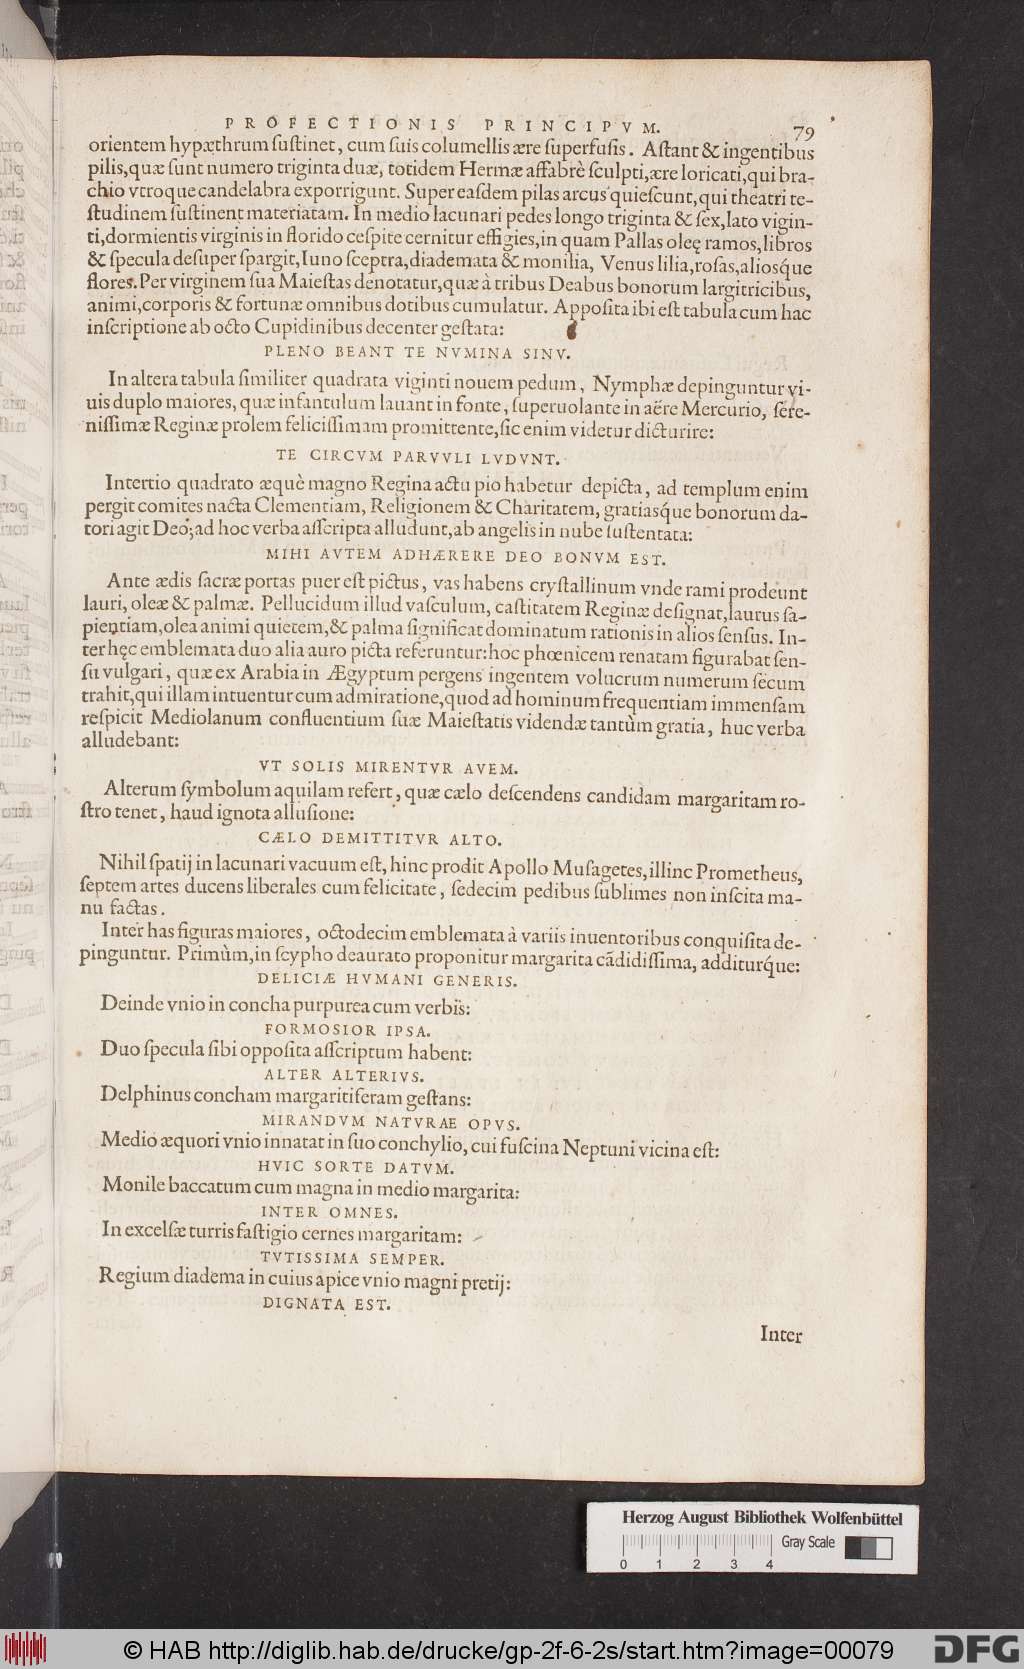 PROFECTIONIS PRINCIPVM. 79
orientem hypæthrum ſuſtinet, cum ſuis columellis ære ſuperfuſis. Aſtant & ingentibus
pilis, quæ ſunt numero triginta duæ, totidem Hermæ affabrè ſculpti, ære loricati, qui bra-
chio vtroque candelabra exporrigunt. Super eaſdem pilas arcus quieſcunt, qui theatri te-
ſtudinem ſuſtinent materiatam. In medio lacunari pedes longo triginta & ſex, lato vigin-
ti, dormientis virginis in florido ceſpite cernitur effigies, in quam Pallas oleę ramos, libros
& ſpecula deſuper ſpargit, Iuno ſceptra, diademata & monilia, Venus lilia, roſas, alioſq́ue
flores. Per virginem ſua Maieſtas denotatur, quæ à tribus Deabus bonorum largitricibus,
animi, corporis & fortunæ omnibus dotibus cumulatur. Appoſita ibi eſt tabula cum hac
inſcriptione ab octo Cupidinibus decenter geſtata:
PLENO BEANT TE NVMINA SINV.
In altera tabula ſimiliter quadrata viginti nouem pedum, Nymphæ depinguntur vi-
uis duplo maiores, quæ infantulum lauant in fonte, ſuperuolante in aëre Mercurio, ſere-
niſſimæ Reginæ prolem feliciſſimam promittente, ſic enim videtur dicturire:
TE CIRCVM PARVVLI LVDVNT.
In tertio quadrato æquè magno Regina actu pio habetur depicta, ad templum enim
pergit comites nacta Clementiam, Religionem & Charitatem, gratiaſq́ue bonorum da-
tori agit Deo; ad hoc verba aſſcripta alludunt, ab angelis in nube ſuſtentata:
MIHI AVTEM ADHÆRERE DEO BONVM EST.
Ante ædis ſacræ portas puer eſt pictus, vas habens cryſtallinum vnde rami prodeunt
lauri, oleæ & palmæ. Pellucidum illud vaſculum, caſtitatem Reginæ deſignat, laurus ſa-
pientiam, olea animi quietem, & palma ſignificat dominatum rationis in alios ſenſus. In-
ter hęc emblemata duo alia auro picta referuntur: hoc phœnicem renatam figurabat ſen-
ſu vulgari, quæ ex Arabia in Ægyptum pergens ingentem volucrum numerum ſecum
trahit, qui illam intuentur cum admiratione, quod ad hominum frequentiam immenſam
reſpicit Mediolanum confluentium ſuæ Maieſtatis videndæ tantùm gratia, huc verba
alludebant:
VT SOLIS MIRENTVR AVEM.
Alterum ſymbolum aquilam refert, quæ cælo deſcendens candidam margaritam ro-
ſtro tenet, haud ignota alluſione:
CÆLO DEMITTITVR ALTO.
Nihil ſpatij in lacunari vacuum eſt, hinc prodit Apollo Muſagetes, illinc Prometheus,
ſeptem artes ducens liberales cum felicitate, ſedecim pedibus ſublimes non inſcita ma-
nu factas.
Inter has figuras maiores, octodecim emblemata à variis inuentoribus conquiſita de-
pinguntur. Primùm, in ſcypho deaurato proponitur margarita cādidiſſima, additurq́ue:
DELICIÆ HVMANI GENERIS.
Deinde vnio in concha purpurea cum verbis:
FORMOSIOR IPSA.
Duo ſpecula ſibi oppoſita aſſcriptum habent:
ALTER ALTERIVS.
Delphinus concham margaritiferam geſtans:
MIRANDVM NATVRAE OPVS.
Medio æquori vnio innatat in ſuo conchylio, cui fuſcina Neptuni vicina eſt:
HVIC SORTE DATVM.
Monile baccatum cum magna in medio margarita:
INTER OMNES.
In excelſæ turris faſtigio cernes margaritam:
TVTISSIMA SEMPER.
Regium diadema in cuius apice vnio magni pretij:
DIGNATA EST.
Inter
Herzog August Bibliothek Wolfenbüttel
Gray Scale
0 1 2 3 4
© HAB http://diglib.hab.de/drucke/gp-2f-6-2s/start.htm?image=00079 DFG